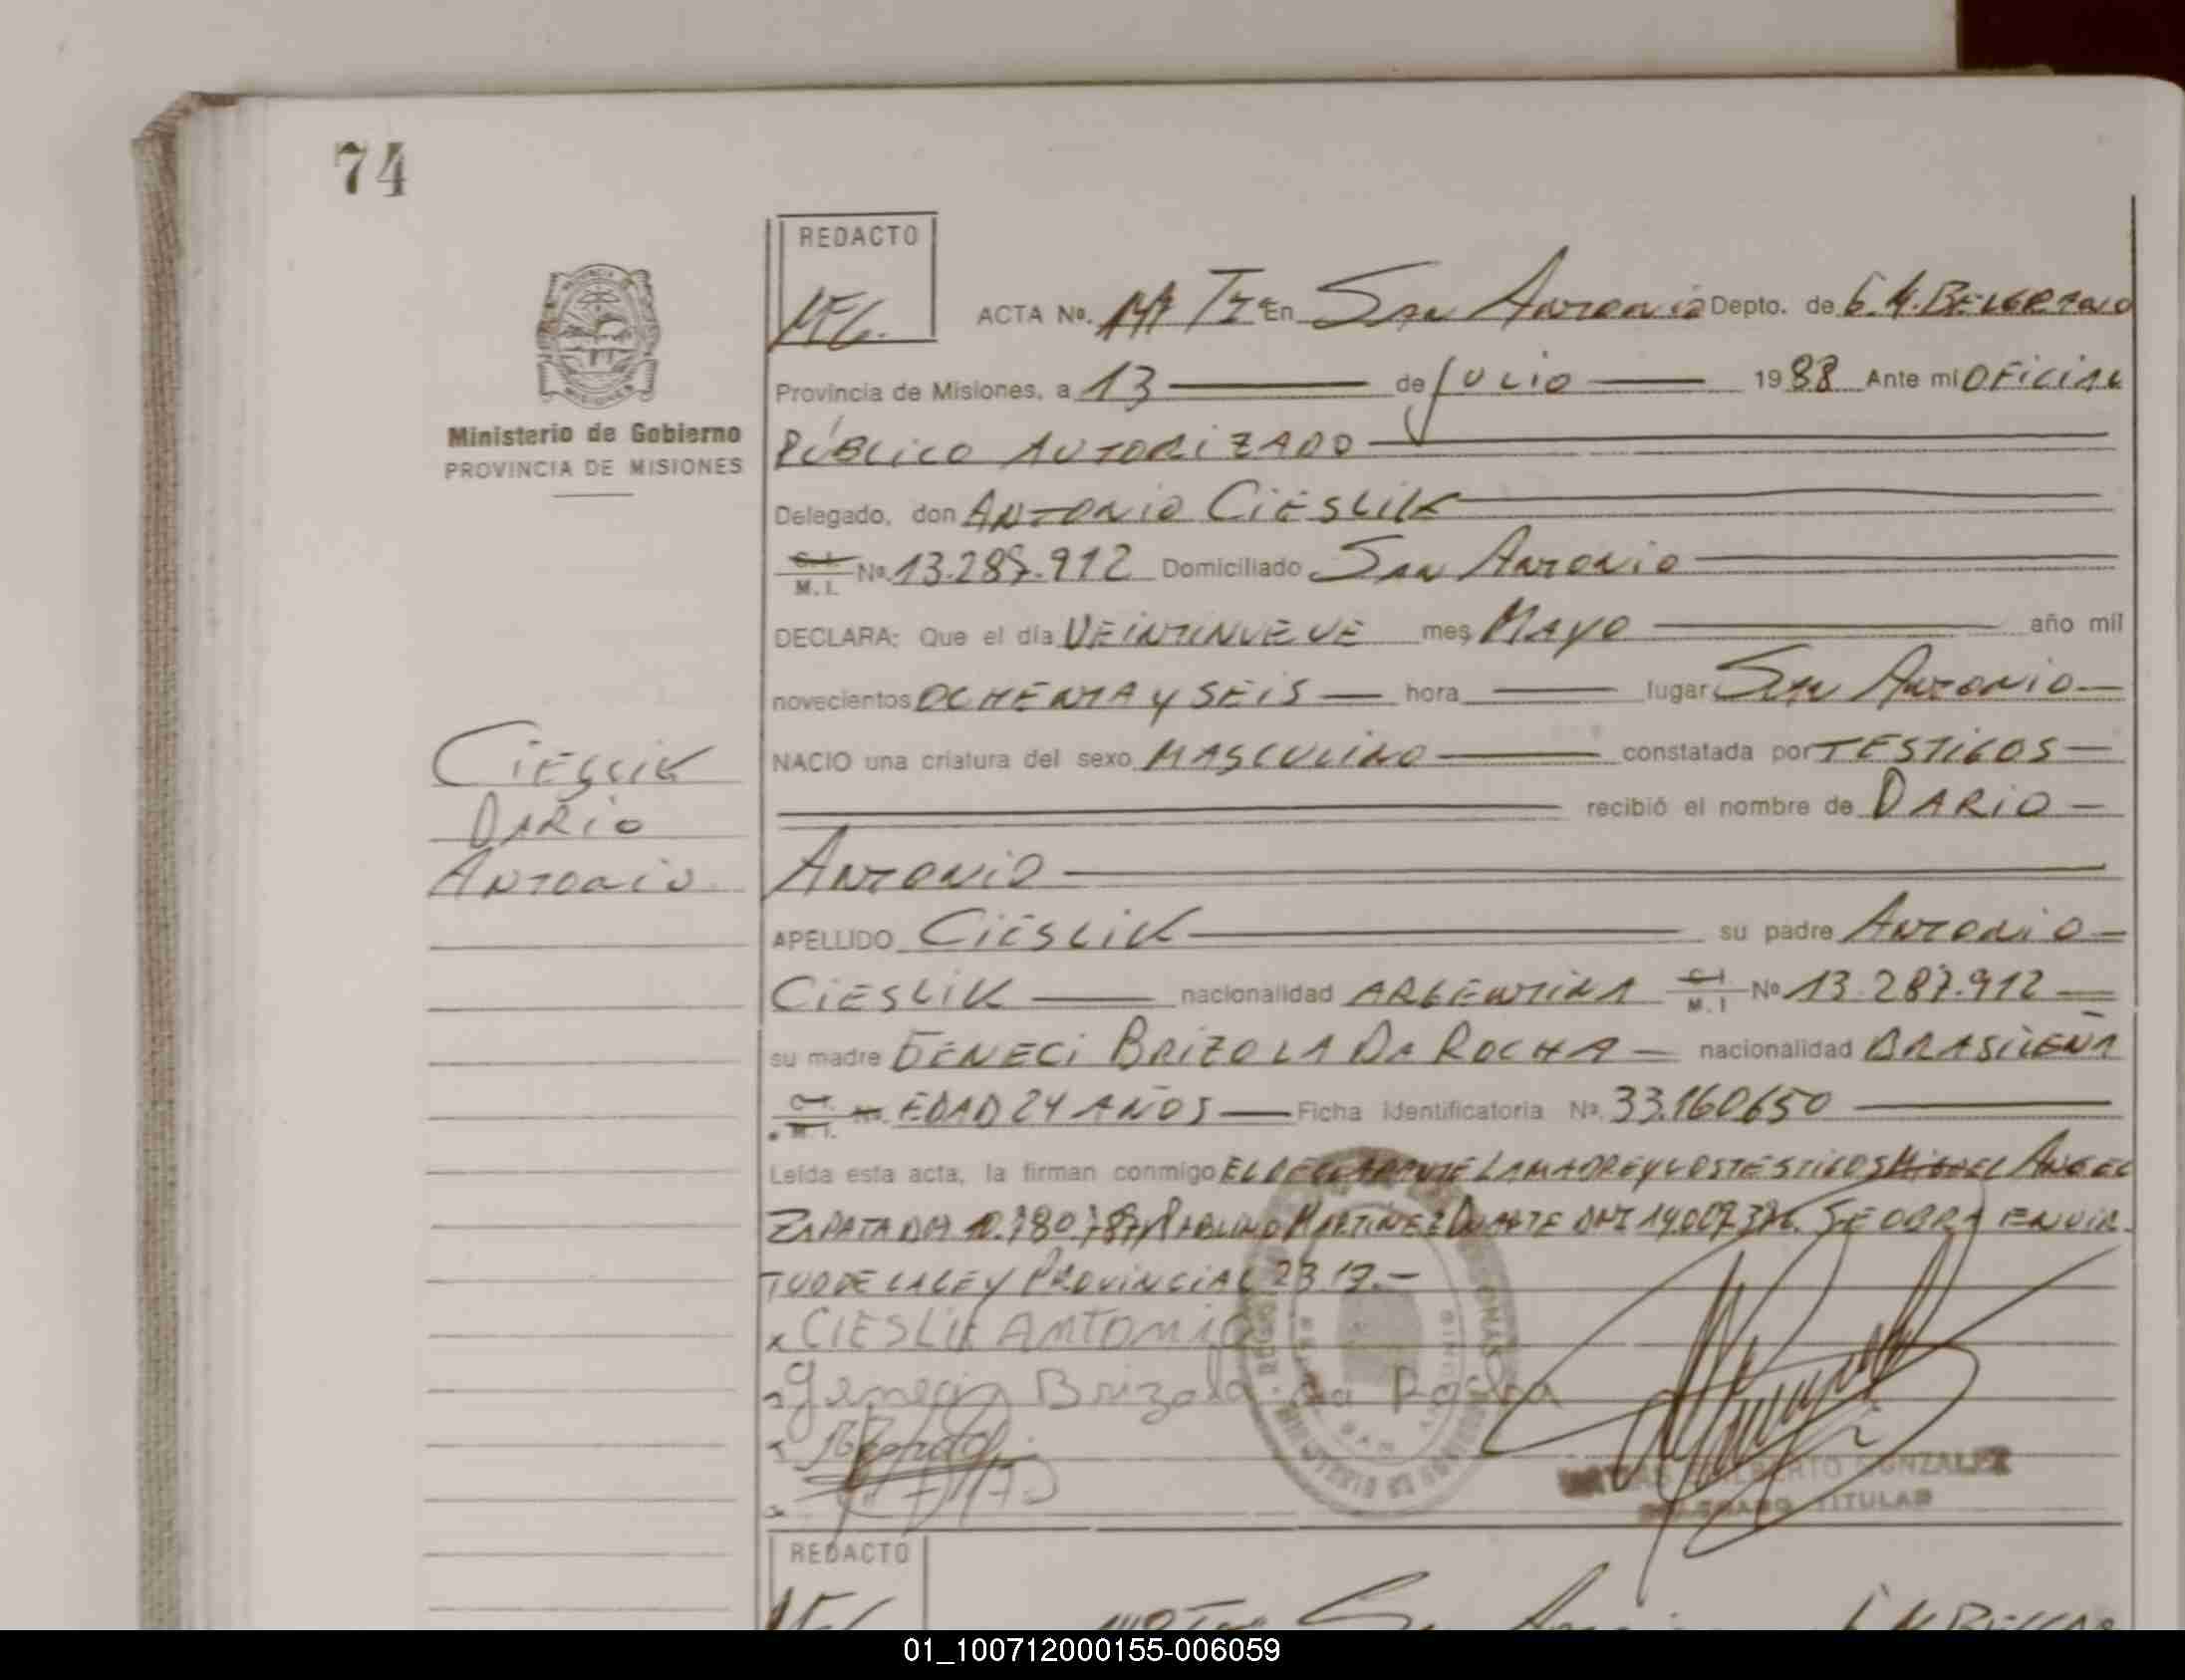 74
REDACTO
ACTA Nº. 147 Tº I En San Antonio Depto. de G. M. BELGRANO
Provincia de Misiones, a 13 de Julio 1988 Ante mi OFICIAL
Ministerio de Gobierno
PROVINCIA DE MISIONES
PÚBLICO AUTORIZADO
Delegado, don ANTONIO CIESLIK
C. I. M. I. Nº 13.287.912 Domiciliado San Antonio
DECLARA: Que el día VEINTINUEVE mes MAYO año mil
novecientos OCHENTA y SEIS hora lugar San Antonio
NACIO una criatura del sexo MASCULINO constatada por TESTIGOS
CIESLIK
DARIO
ANTONIO
recibió el nombre de DARIO
ANTONIO
APELLIDO CIESLIK su padre ANTONIO
CIESLIK nacionalidad ARGENTINA C. I. M. I Nº 13.287.912
su madre GENECI BRIZOLA DA ROCHA nacionalidad BRASILEÑA
EDAD 24 AÑOS Ficha identificatoria Nº. 33.160650
Leída esta acta, la firman conmigo EL DECLARANTE LA MADRE y LOS TESTIGOS MIGUEL ANGEL
ZAPATA DNI 10.780.787 y PABLINO MARTINEZ DUARTE DNI SE OBRA EN VIR-
TUD DE LA LEY PROVINCIAL 2319.-
x CIESLIK ANTONIO
Brizola da Rocha
ALBERTO GONZALEZ
DELEGADO TITULAR
REDACTO
01_100712000155-006059